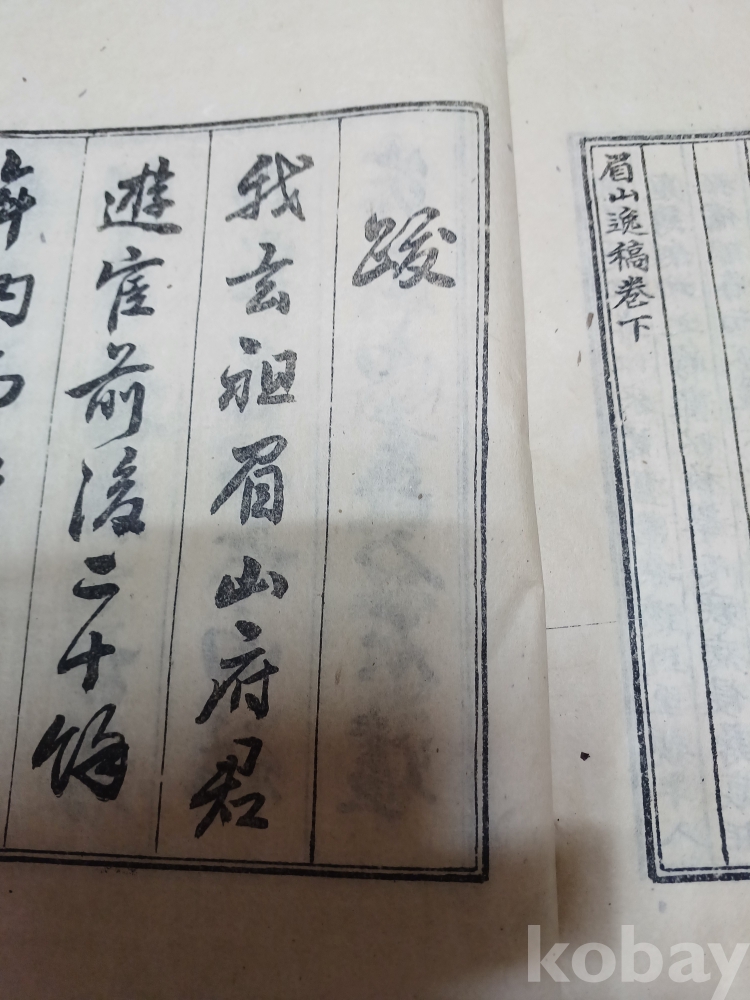 眉山逸稿卷下
跋
我玄祖眉山府君
遊宦前後二十餘
年內
kobay